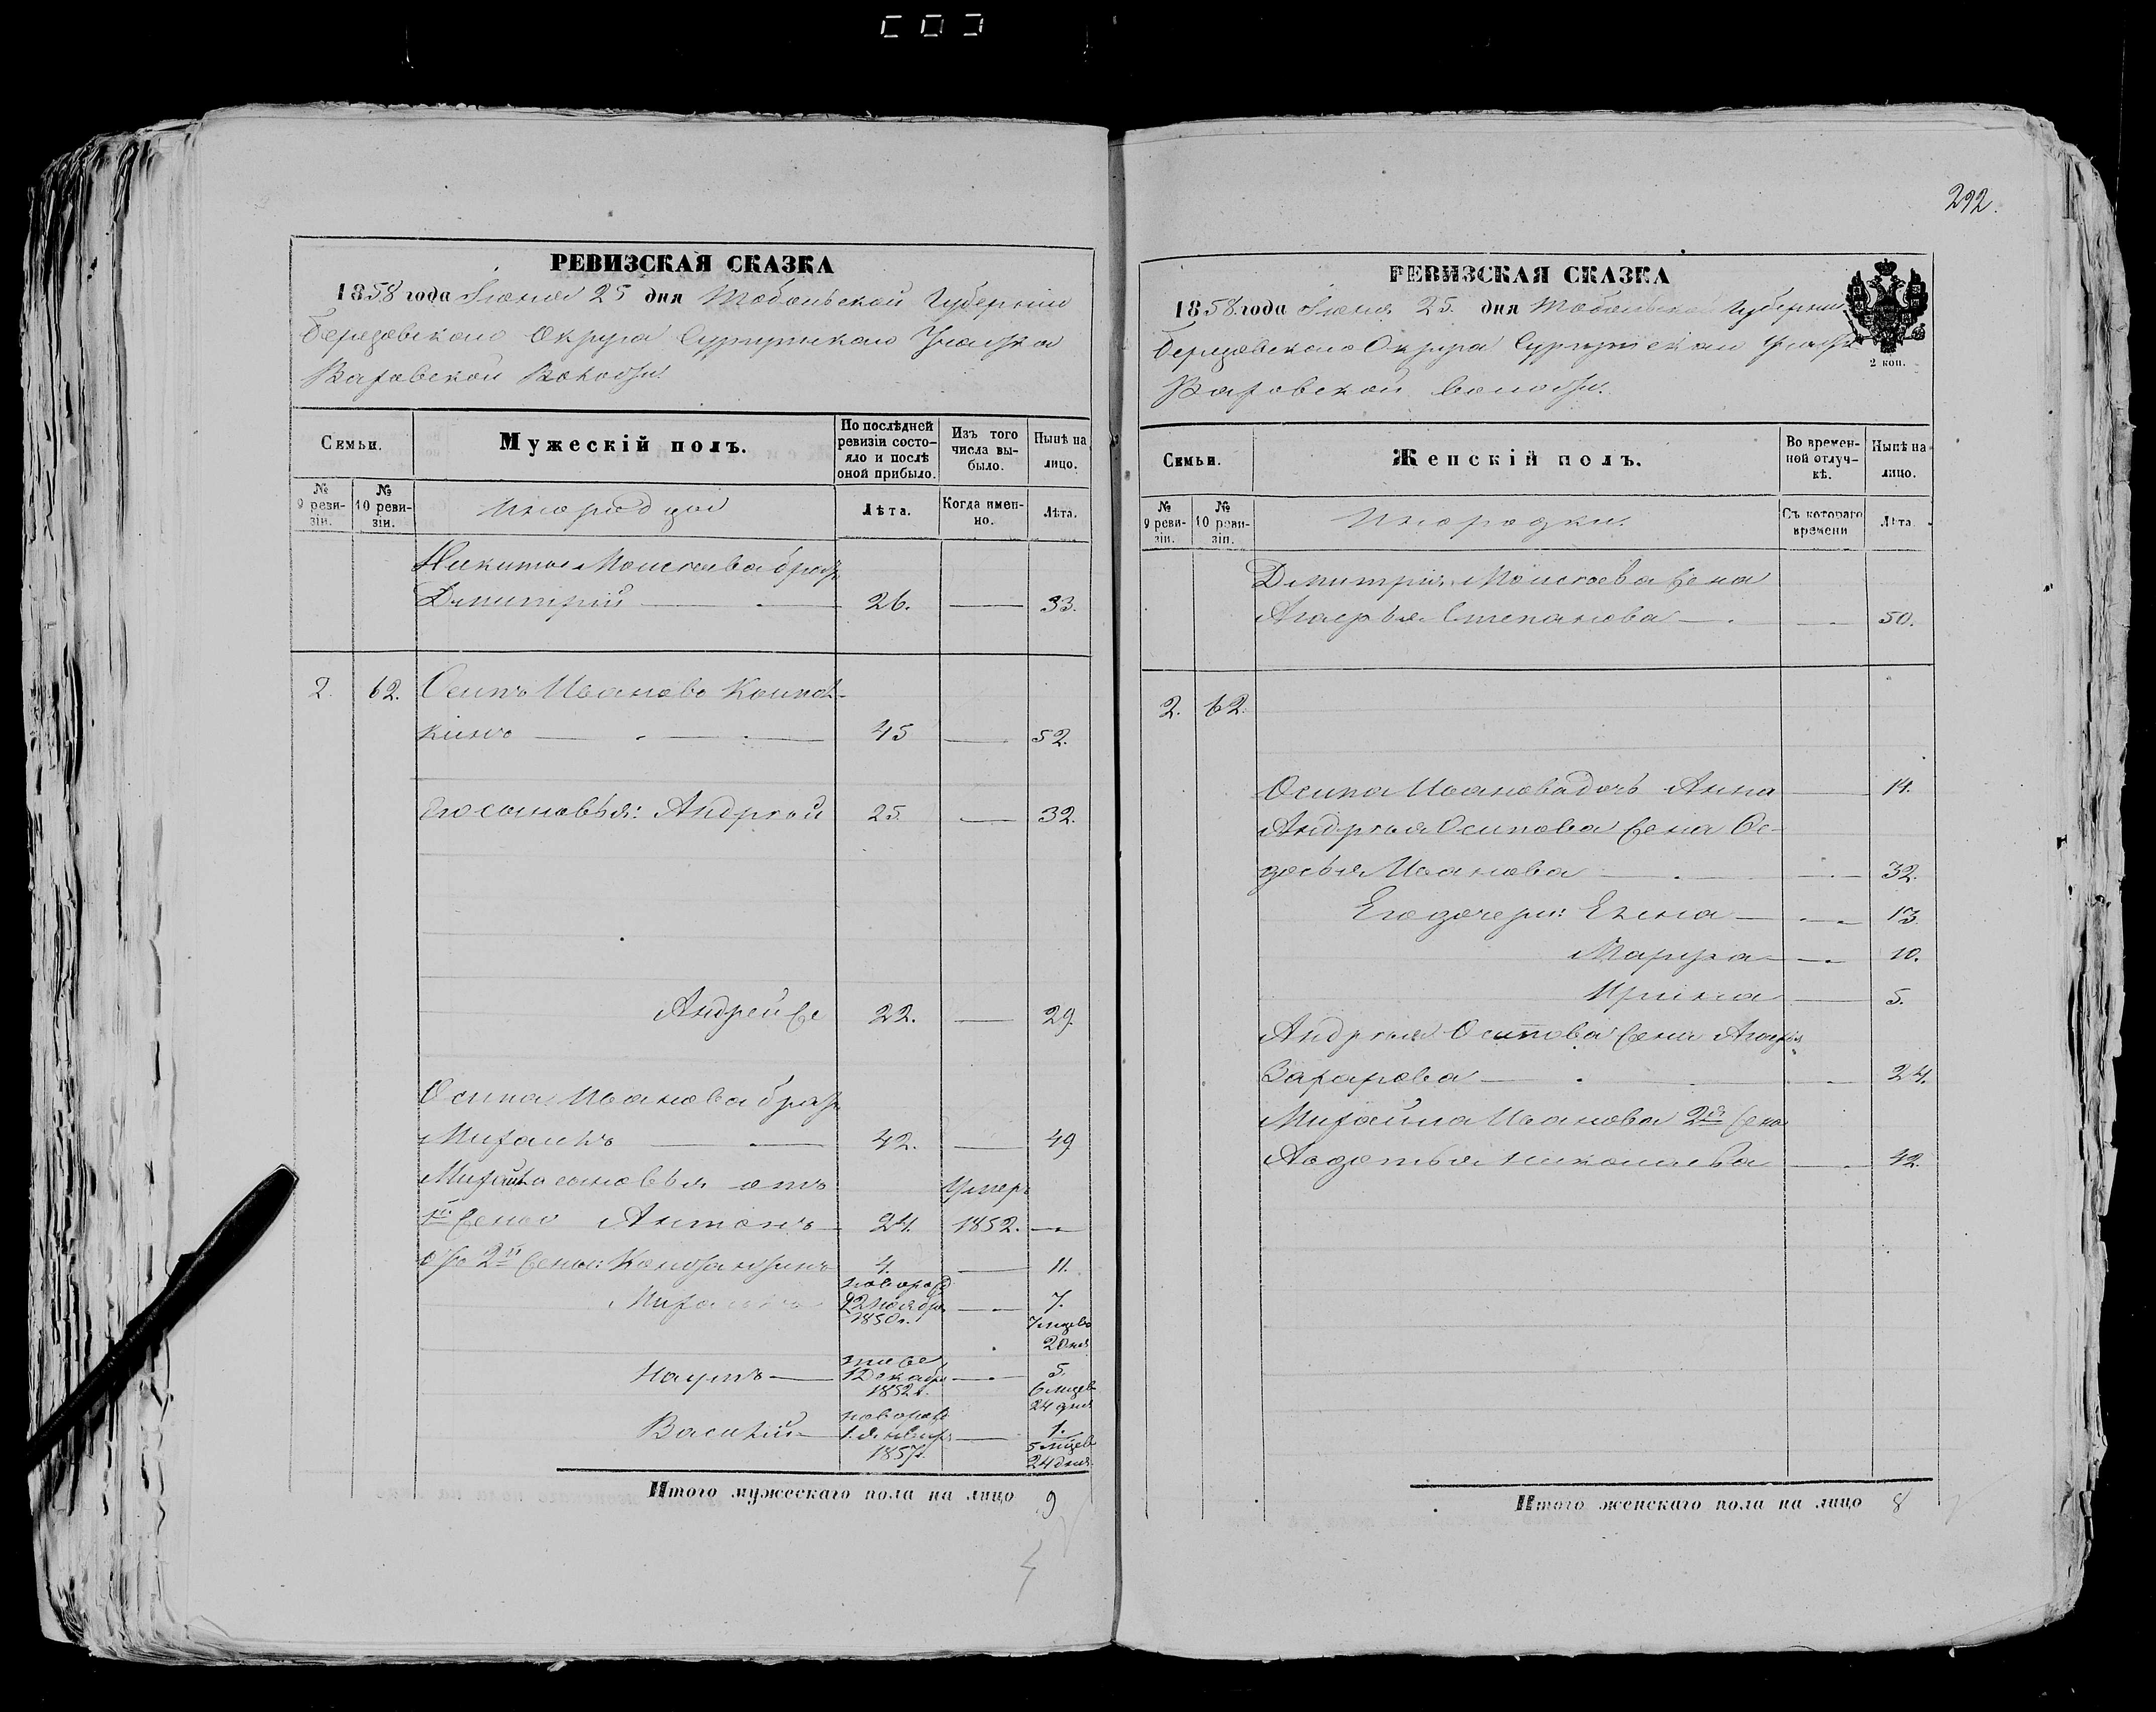 292.
РЕВИЗСКАЯ СКАЗКА
1858 года Июня 25 дня Тобольской Губерніи
Березовскаго Округа Сургутскаго Участка
Ваховской Волости
Семьи.
Мужескій полъ.
По послѣдней ревизіи состояло и послѣ оной прибыло.
Изъ того числа выбыло.
Нынѣ на лицо.
№ 9 ревизіи.
№ 10 ревизіи.
Инородцы
Лѣта.
Когда именно.
Лѣта.
Никиты Моисеева братъ
Дмитрій 26. 33.
2. 62. Осипъ Ивановъ
кинъ 45 52.
Его сыновья: Андрей 25 32.
Андрей же 22. 29.
Осипа Иванова братъ
Михаилъ 42. 49.
Михайла сыновья отъ умеръ
1й жены Антонъ 24. 1852.
отъ 2й жены: Константинъ 4. 11.
Михаилъ новорожд 22 Ноября 1850г. 7. 7 мцевъ 2 дня
Наумъ тоже 1 Декабр 1852г. 5. 6 мцев 24 дня
Василій новорожд 1 Январ 1857г. 1. 5 мцев 24 дня
Итого мужескаго пола на лицо 9
РЕВИЗСКАЯ СКАЗКА
1858 года Июня 25. дня Тобольской Губерніи
Березовскаго Округа Сургутскаго Участка
Ваховской волости.
2 коп.
Семьи.
Женскій полъ.
Во временной отлучкѣ.
Нынѣ на лицо.
№ 9 ревизіи.
№ 10 ревизіи.
Инородки.
Съ котораго времени
Лѣта.
Дмитрія Моисеева жена
Агафья Степанова 50.
2. 62.
Осипа Иванова дочь Анна 14.
Андрея Осипова жена Ѳе-
досья Иванова 32.
Его дочери: Елена 13
Марфа 10.
Ирина 5.
Андрея Осипова жена Агафья
Захарова 24.
Михайла Иванова 2я жена
Авдотья Николаева 42.
Итого женскаго пола на лицо 8